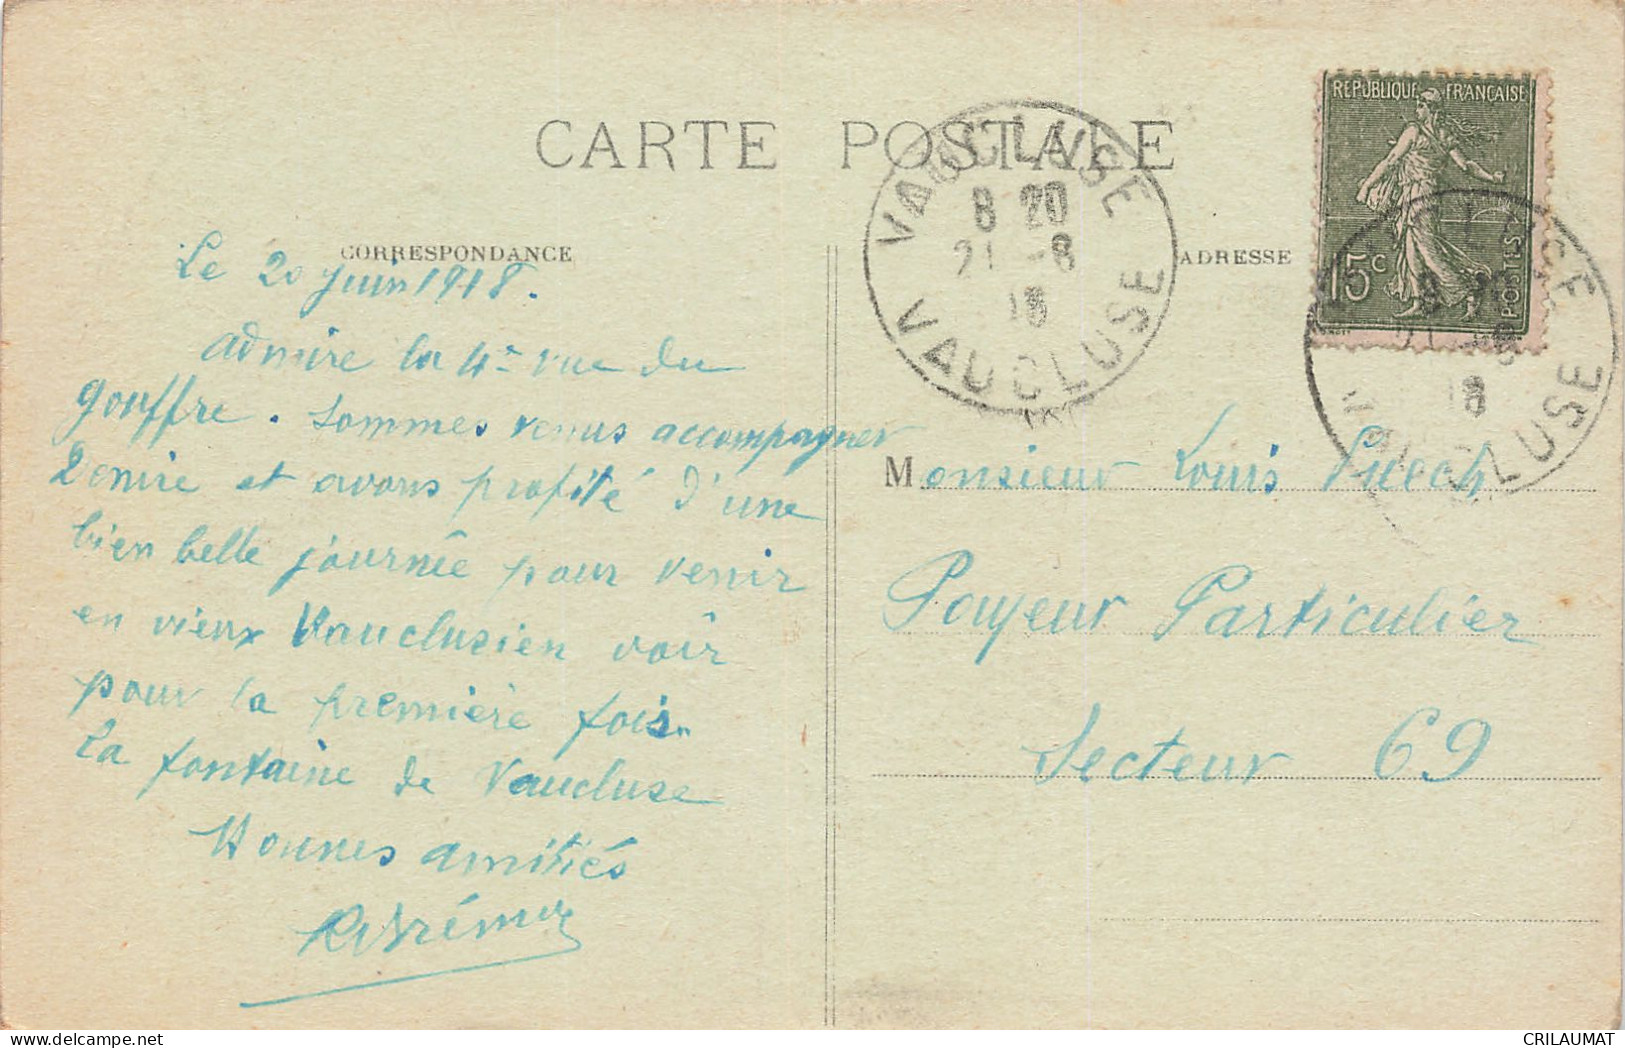 CARTE POSTALE
CORRESPONDANCE
ADRESSE
REPUBLIQUE FRANÇAISE
15c
POSTES
VAUCLUSE
8 20
21 -8
18
VAUCLUSE
8 20
21 -8
18
VAUCLUSE
Le 20 juin 1918.
admire la 4e vue du
gouffre. sommes venus accompagner
et avons profité d'une
bien belle journée pour venir
en vieux Vauclusien voir
pour la première fois
la fontaine de Vaucluse
amitiés
Monsieur Louis Puech
Payeur Particulier
Secteur 69
CRILAUMAT